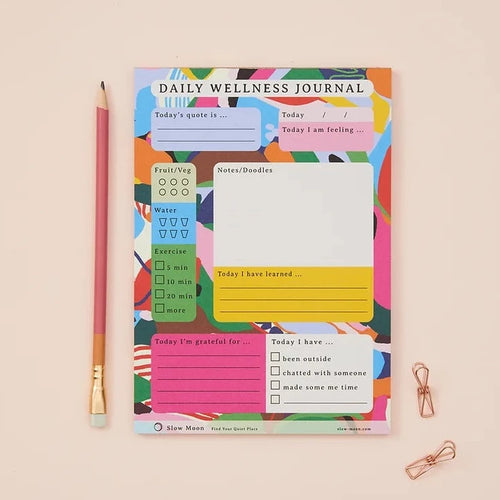 DAILY WELLNESS JOURNAL
Today's quote is ...
Today / /
Today I am feeling ...
Fruit/Veg
Notes/Doodles
Water
Exercise
5 min
10 min
20 min
more
Today I have learned ...
Today I'm grateful for ...
Today I have ...
been outside
chatted with someone
made some me time
Slow Moon
Find Your Quiet Place
slow-moon.com